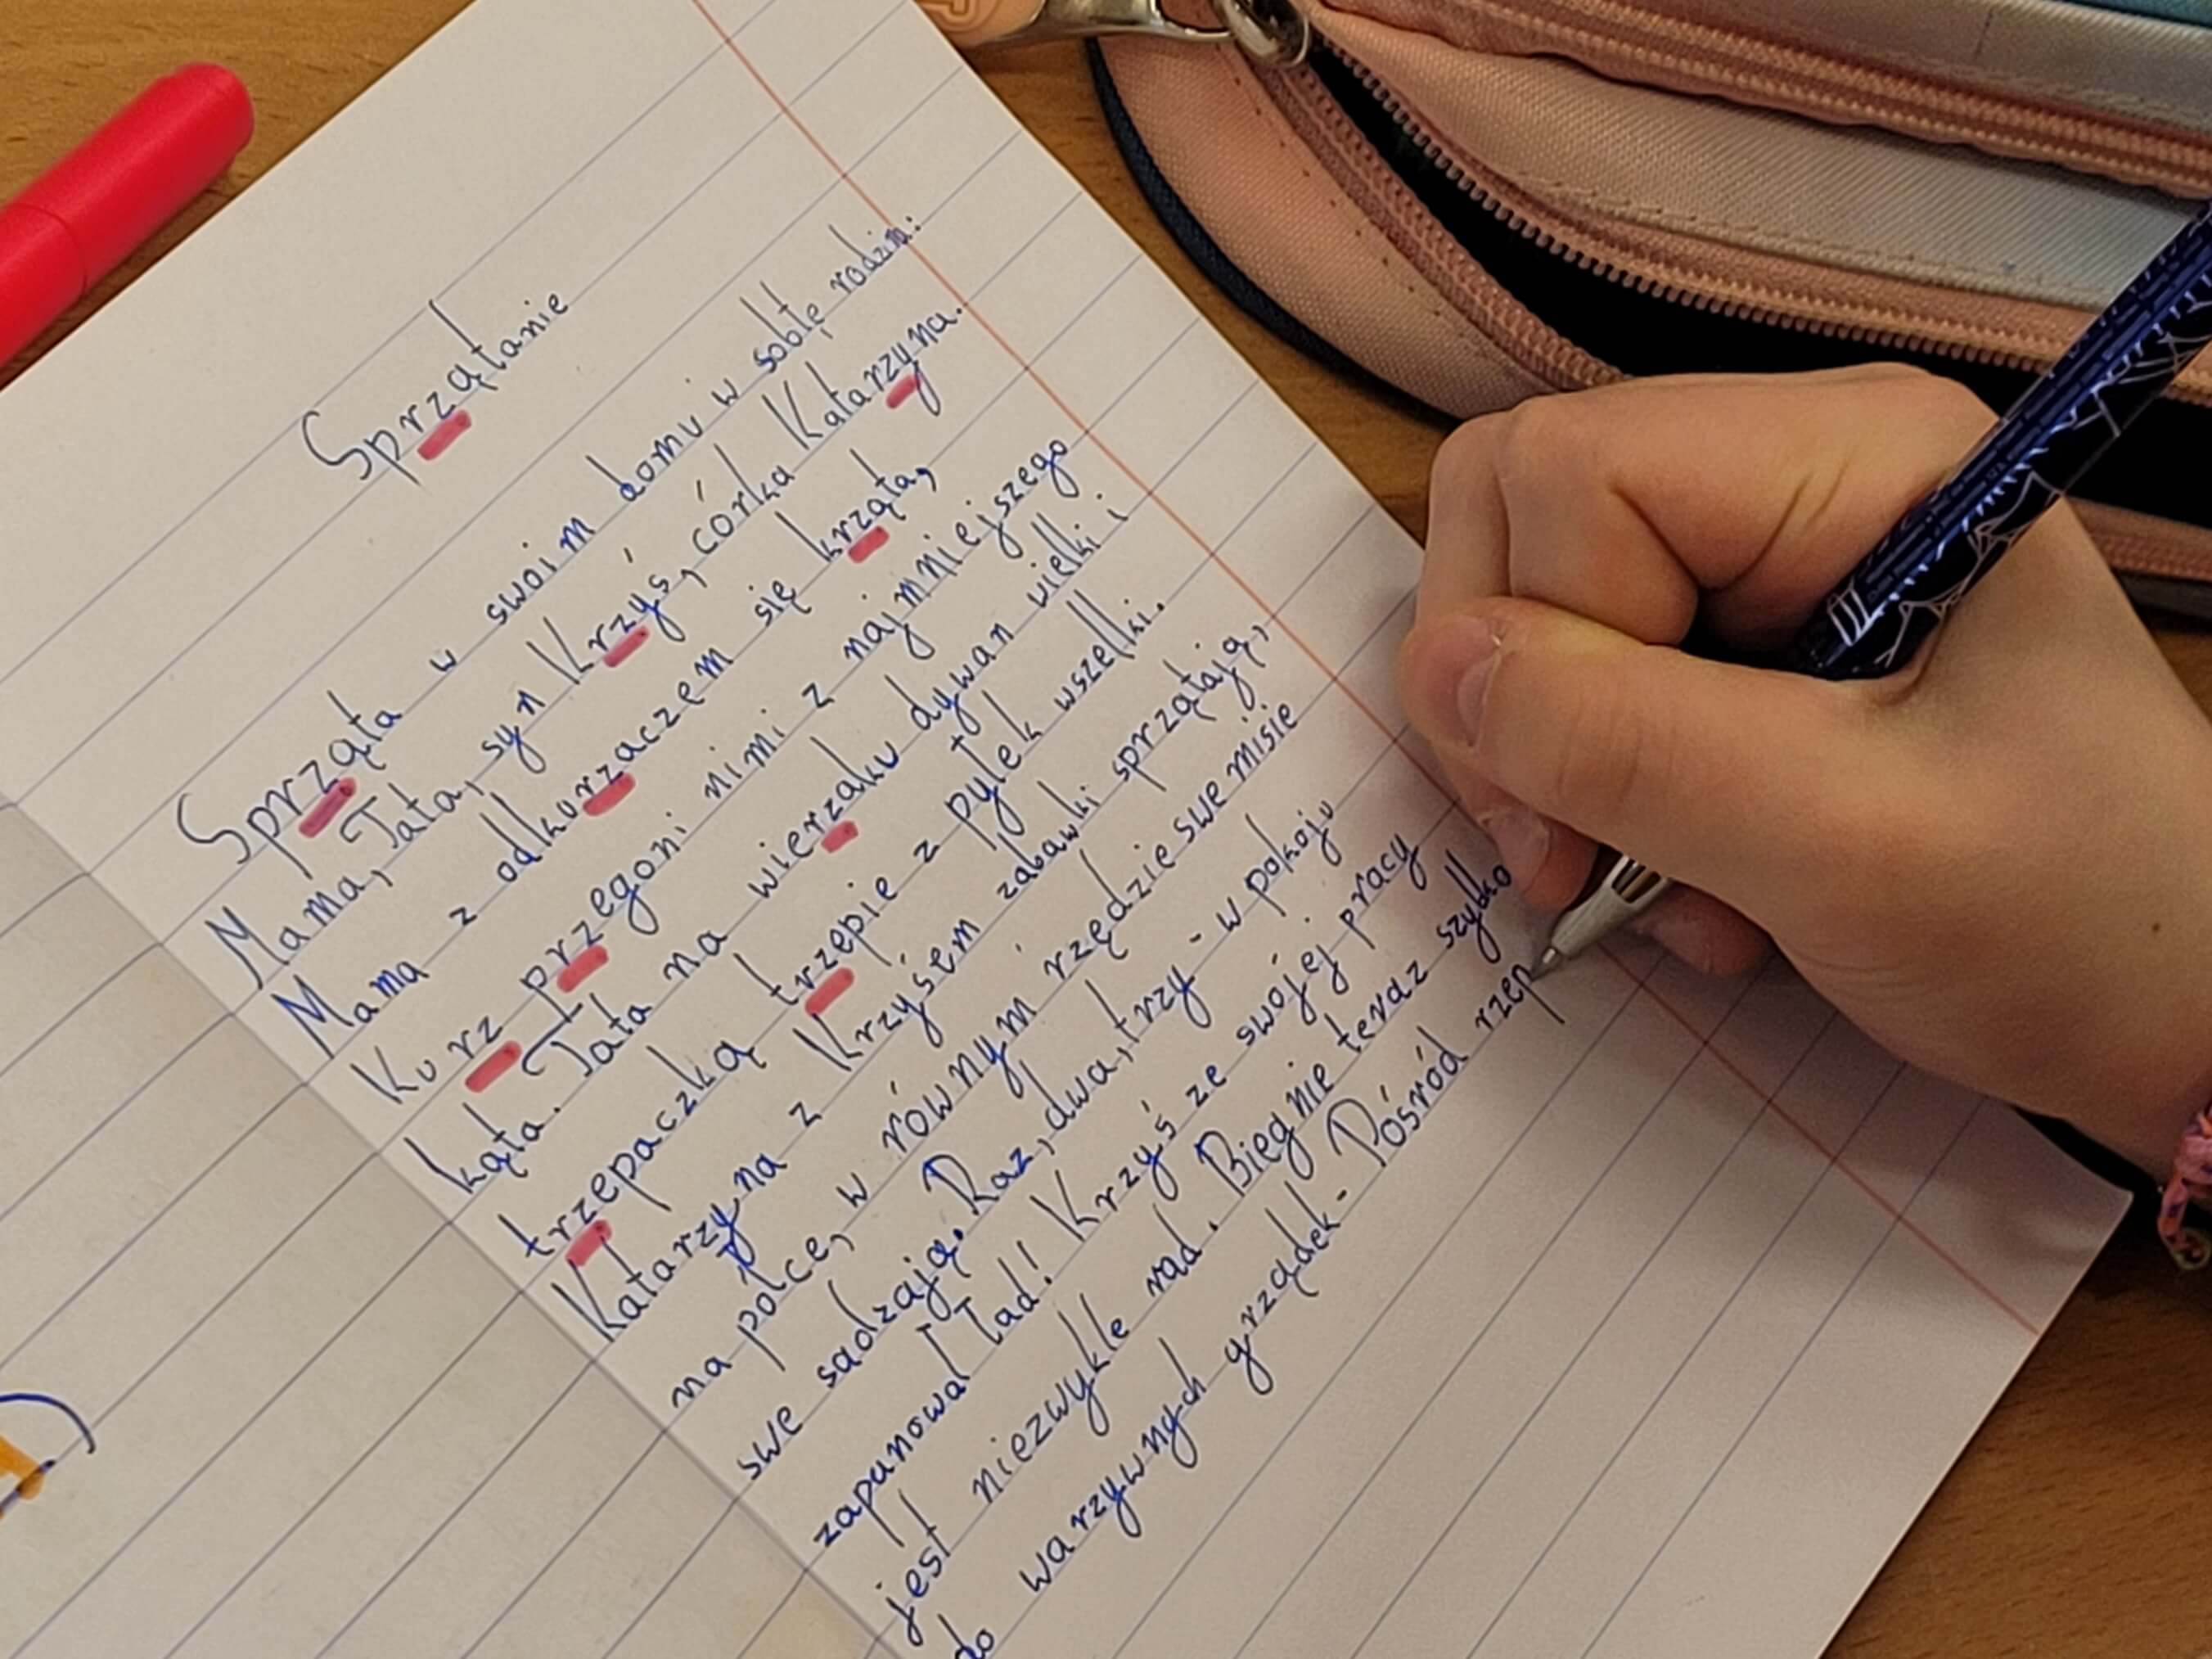 Sprzątanie
Sprząta w swoim domu w sobtę rodzin:
Mama, Tata, syn Krzyś, córka Katarzyna.
Mama z odkurzaczem się krząta,
Kurz przegoni nimi z najmniejszego
kąta. Tata na wierzaku dywan wielki i
trzepaczką trzepie z pyłek wszelki.
Katarzyna z Krzysiem zabawki sprzątają,
na półce, w równym rzędzie swe misie
swe sadzają. Raz, dwa, trzy - w pokoju
zapanował ład! Krzyś ze swojej pracy
jest niezwykle rad. Biegnie teraz szybko
do warzywnych grządek - Pośród rzep